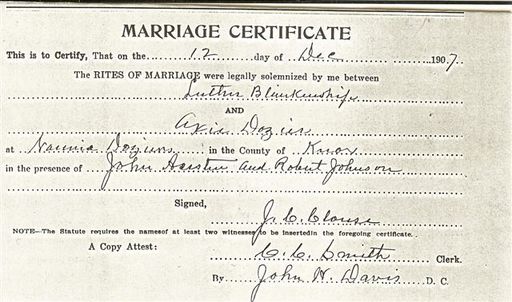 MARRIAGE CERTIFICATE
This is to Certify, That on the 12 day of Dec 1907
The RITES OF MARRIAGE were legally solemnized by me between
Luther Blankenship
AND
Axie Dozier
at Nannie Doziers in the County of Knox
in the presence of John Hairston and Robert Johnson
Signed,
J. C. Clouse
NOTE—The Statute requires the namesof at least two witnesses to be insertedin the foregoing certificate.
A Copy Attest: C. C. Smith Clerk.
By John W. Davis D. C.